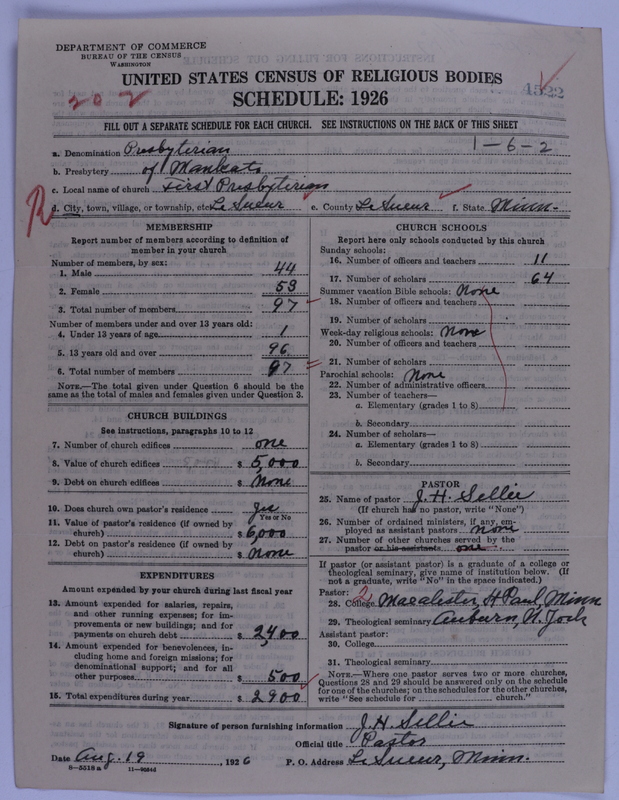 DEPARTMENT OF COMMERCE
BUREAU OF THE CENSUS
WASHINGTON
UNITED STATES CENSUS OF RELIGIOUS BODIES
SCHEDULE: 1926
202
4522
FILL OUT A SEPARATE SCHEDULE FOR EACH CHURCH. SEE INSTRUCTIONS ON THE BACK OF THIS SHEET
1-6-2
a. Denomination Presbyterian
b. Presbytery of Mankato
c. Local name of church First Presbyterian
R
d. City, town, village, or township, etc. Le Sueur e. County Le Sueur f. State Minn.
MEMBERSHIP
Report number of members according to definition of member in your church
Number of members, by sex:
1. Male 44
2. Female 53
3. Total number of members 97
Number of members under and over 13 years old:
4. Under 13 years of age 1
5. 13 years old and over 96
6. Total number of members 97
NOTE.—The total given under Question 6 should be
same as the total of males and females given under Question 3.
CHURCH BUILDINGS
See instructions, paragraphs 10 to 12
7. Number of church edifices one
8. Value of church edifices $ 5,000
9. Debt on church edifices $ None
10. Does church own pastor's residence Yes
Yes or No
11. Value of pastor's residence (if owned by
church) $ 6,000
12. Debt on pastor's residence (if owned by
church) $ None
EXPENDITURES
Amount expended by your church during last fiscal year
13. Amount expended for salaries, repairs,
and other running expenses; for im-
provements or new buildings; and for
payments on church debt $ 2,400
14. Amount expended for benevolences, in-
cluding home and foreign missions; for
denominational support; and for all
other purposes $ 500
15. Total expenditures during year $ 2900
CHURCH SCHOOLS
Report here only schools conducted by this church
Sunday schools:
16. Number of officers and teachers 11
17. Number of scholars 64
Summer vacation Bible schools: None
18. Number of officers and teachers
19. Number of scholars
Week-day religious schools: None
20. Number of officers and teachers
21. Number of scholars
Parochial schools: None
22. Number of administrative officers
23. Number of teachers—
a. Elementary (grades 1 to 8)
b. Secondary
24. Number of scholars—
a. Elementary (grades 1 to 8)
b. Secondary
PASTOR
25. Name of pastor J. H. Sellie
(If church has no pastor, write "None")
26. Number of ordained ministers, if any, em-
ployed as assistant pastors None
27. Number of other churches served by the
pastor or his assistants one
If pastor (or assistant pastor) is a graduate of a college or
theological seminary, give name of institution below. (If
not a graduate, write "No" in the space indicated.)
Pastor: 2
28. College Macalester, St Paul, Minn
29. Theological seminary Auburn, N. York
Assistant pastor:
30. College
31. Theological seminary
NOTE.—Where one pastor serves two or more churches,
Questions 28 and 29 should be answered only on the schedule
for one of the churches; on the schedules for the other churches,
write "See schedule for church."
Signature of person furnishing information J. H. Sellie
Official title Pastor
Date Aug. 19, 1926 P. O. Address Le Sueur, Minn.
8-5518a 11-9204d